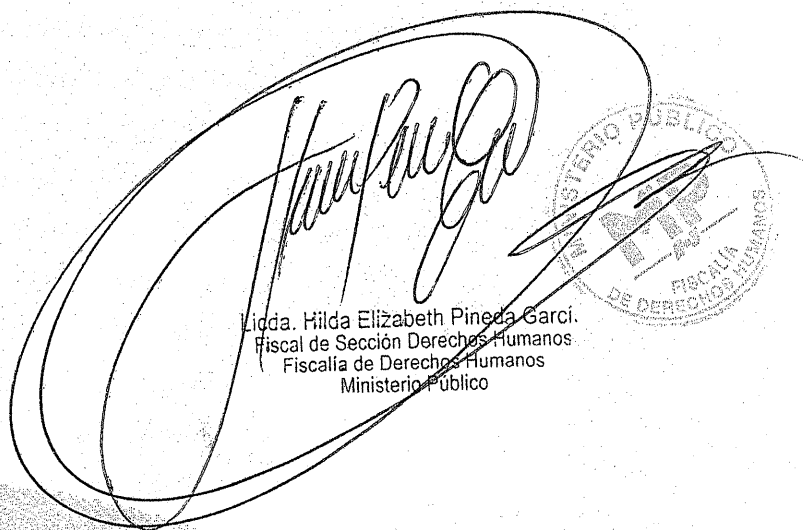 Licda. Hilda Elizabeth Pineda Garcí.
Fiscal de Sección Derechos Humanos
Fiscalía de Derechos Humanos
Ministerio Público
MINISTERIO PÚBLICO
MP
FISCALÍA
DE DERECHOS HUMANOS